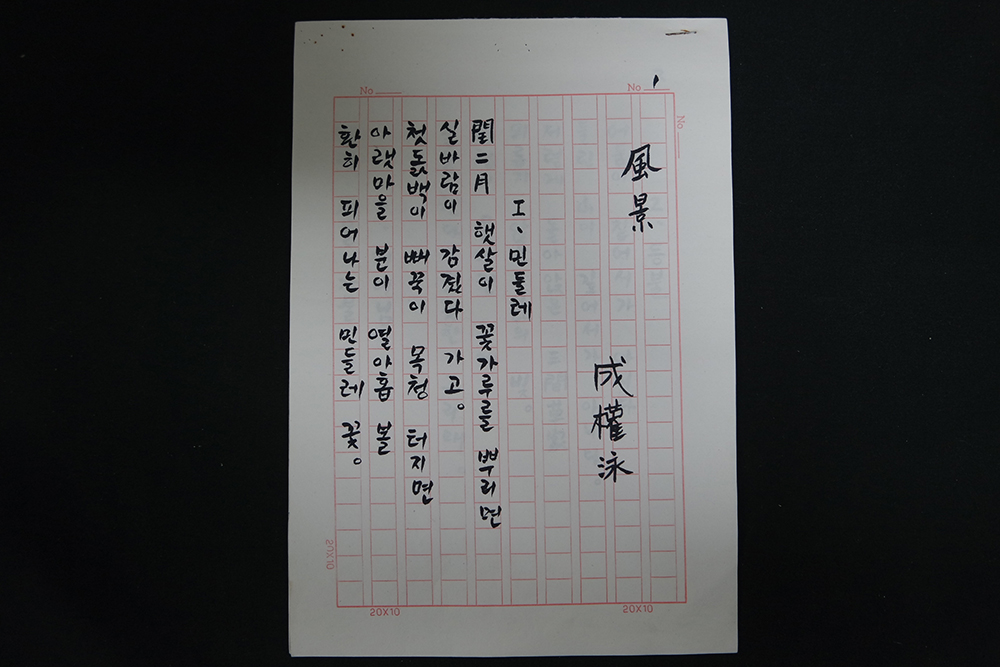 No
No 1
No
風景
成權泳
I、민들레
閏二月 햇살이 꽃가루를 뿌리면
실바람이 감꼈다 가고。
첫돐백이 뻐꾹이 목청 터지면
아랫마을 분이 열아홉 볼
환히 피어나는 민들레 꽃。
20X10
20X10
20X10